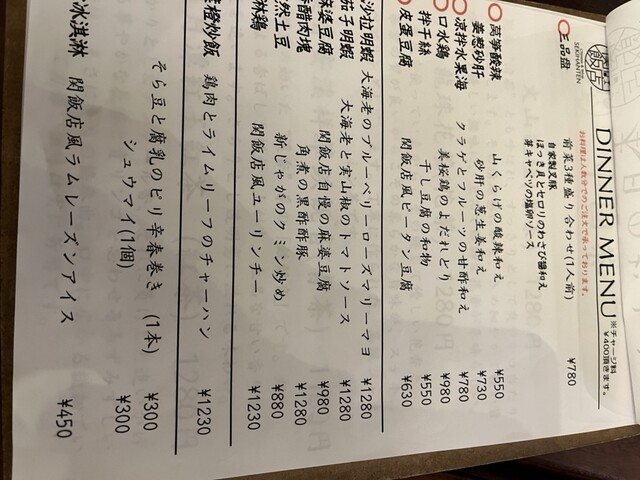 飯店
SEKIHANTEN
DINNER MENU
※チャージ料
¥400頂きます。
お料理は人数分でのご注文で承っております。
三品盤 前菜3種盛り合わせ(1人前) ¥780
自家製叉豚
ほっき貝とセロリのわさび醤和え
芽キャベツの塩卵ソース
萵筍酸辣 山くらげの酸辣和え ¥550
姜葱砂肝 砂肝の葱生姜和え ¥730
凉拌水果海 クラゲとフルーツの甘酢和え ¥780
口水鶏 美桜鶏のよだれどり ¥980
拌干絲 干し豆腐の和物 ¥550
皮蛋豆腐 関飯店風ピータン豆腐 ¥630
沙拉明蝦 大海老のブルーベリーローズマリーマヨ ¥1280
茄子明蝦 大海老と実山椒のトマトソース ¥1280
麻婆豆腐 関飯店自慢の麻婆豆腐 ¥980
黒醋肉塊 角煮の黒酢酢豚 ¥1280
孜然土豆 新じゃがのクミン炒め ¥880
油淋鶏 関飯店風ユーリンチー ¥1230
橙炒飯 鶏肉とライムリーフのチャーハン ¥1230
そら豆と腐乳のピリ辛春巻き (1本) ¥300
シュウマイ(1個) ¥300
冰淇淋 関飯店風ラムレーズンアイス ¥450